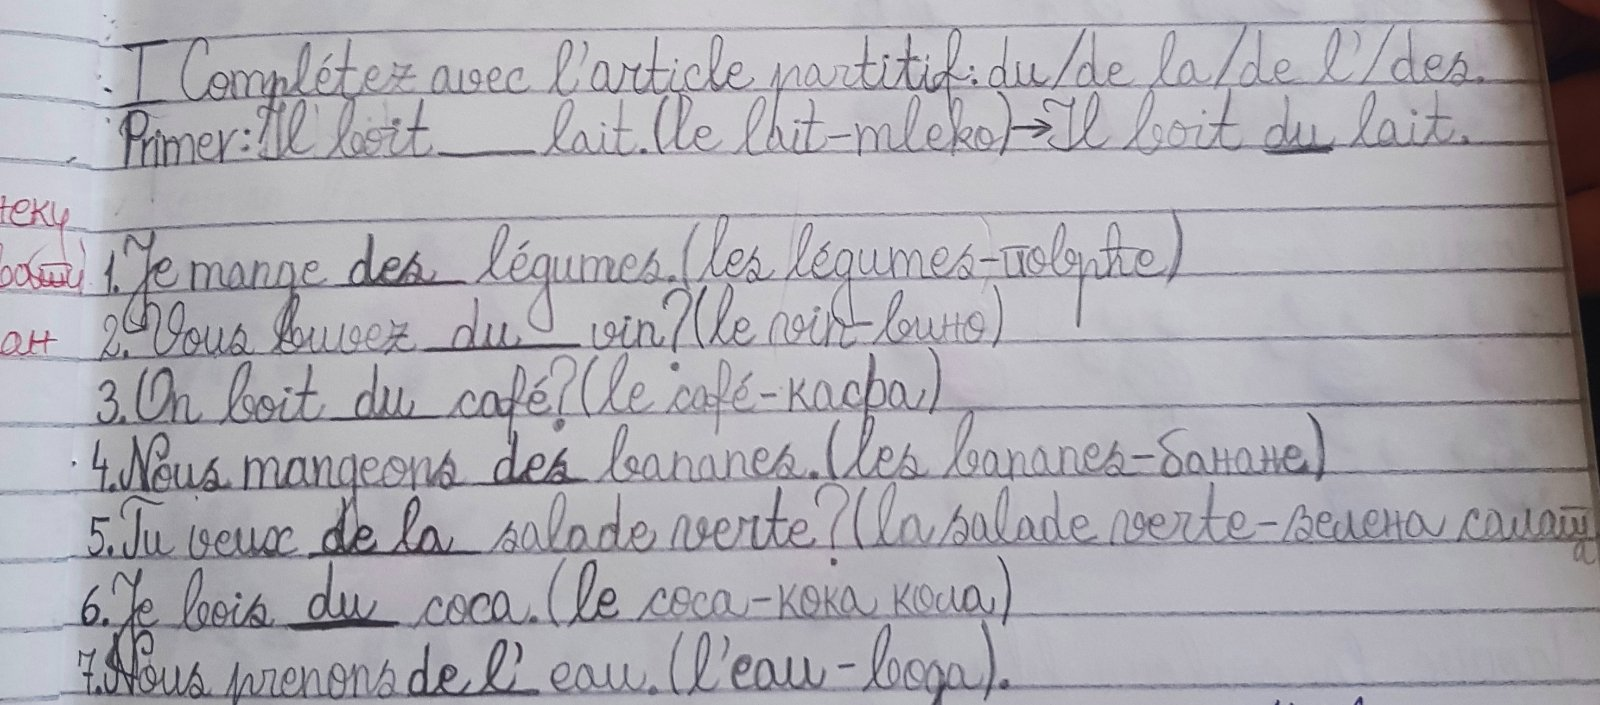 I Complétez avec l'article partitif: du/de la/de l'/des.
Primer: Il boit ___ lait. (le lait-mleko) → Il boit du lait.
теку
1. Je mange des légumes. (les légumes-поврће)
2. Vous buvez du vin? (le vin-вино)
ан
3. On boit du café? (le café-кафа)
4. Nous mangeons des bananes. (les bananes-банане)
5. Tu veux de la salade verte? (la salade verte-зелена салата
6. Je bois du coca. (le coca-кока кола)
7. Nous prenons de l' eau. (l'eau-вода).